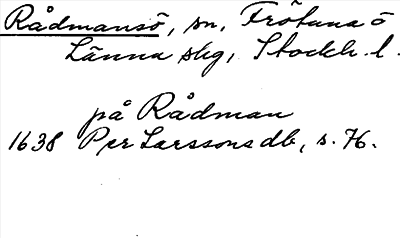 Rådmansö, sn, Frötuna o
Länna slg, Stockh. l.
på Rådman
1638 Per Larssons db, s. 76.